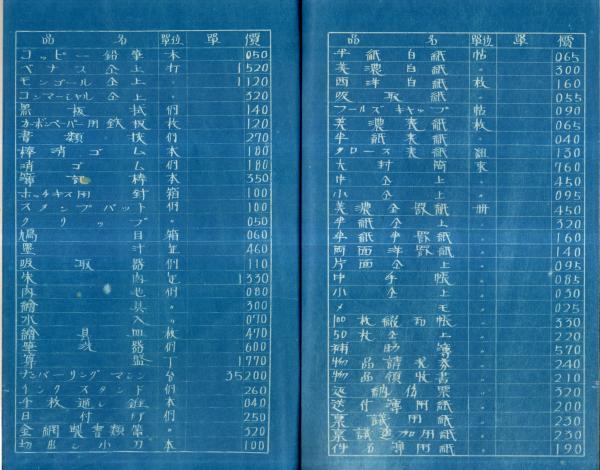 品 名 單位 單 價
コッピー鉛筆 本 050
ベナス 仝上 打 1520
モンゴール 仝上 〃 1120
コンマーシャル 仝上 〃 320
黒板拭 個 140
カーボンペーパー用鉄板 枚 120
書類挟 個 270
棒消ゴム 本 180
消ゴム 個 180
簿記棒 本 350
ホッチキス用針 箱 100
スタンプパット 個 100
クリップ 〃 050
鳩目 箱 060
墨汁 460
吸取器 個 110
朱肉 1330
肉池 個 080
〃 300
水 〃 070
繪具皿 枚 470
筆 個 600
算盤 丁 1770
ナンバーリングマシン 台 35200
インクスタンド 個 260
千枚通し錐 本 040
日付 個 250
金網製書類 〃 320
切出し小刀 本 100
品 名 單位 單 價
半紙白紙 帖 065
美濃白紙 〃 300
西洋白紙 枚 160
吸取紙 〃 055
フールスキャップ 帖 090
美濃表紙 枚 065
半紙表紙 〃 040
クロース表紙 組 130
大封筒 束 760
中仝上 〃 450
小仝上 〃 095
美濃仝罫紙 冊 450
半紙仝上 〃 320
半紙半罫紙 〃 160
両面洋罫紙 〃 140
片面仝上 〃 095
中手帳 〃 085
小仝上 〃 030
メモ 〃 025
100枚 帳 〃 330
50枚仝上 〃 220
補助簿 〃 570
物品請求券 〃 240
物品領收書 〃 210
返納傳票 〃 320
送付簿用紙 〃 200
稟議用紙 〃 230
稟議追加用紙 〃 230
件名簿用紙 〃 190